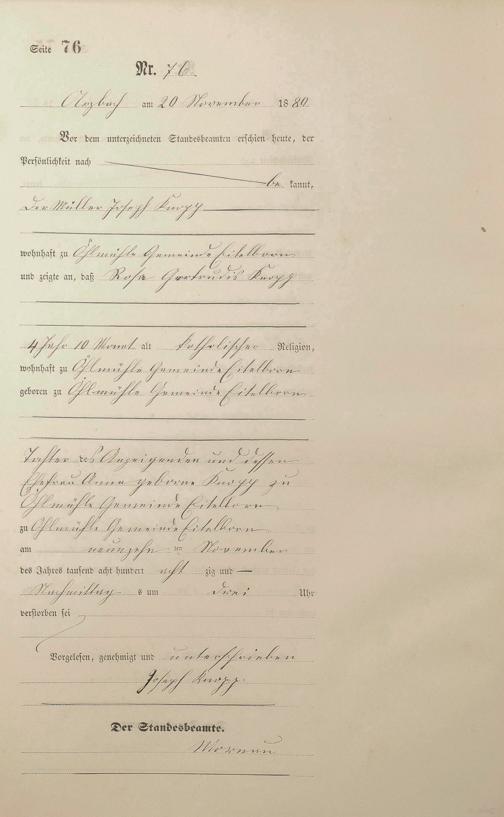 Seite 76
Nr. 76.
Arzbach am 20 November 1880
Vor dem unterzeichneten Standesbeamten erschien heute, der
Persönlichkeit nach
be kannt,
der Müller Joseph Knopp
wohnhaft zu Öhlmühle Gemeinde Eitelborn
und zeigte an, daß Rosa Gertrudis Knopp
4 Jahr 10 Monat alt katholischer Religion,
wohnhaft zu Öhlmühle Gemeinde Eitelborn
geboren zu Öhlmühle Gemeinde Eitelborn
Tochter des Anzeigenden und dessen
Ehefrau Anna geborne Knopp zu
Öhlmühle Gemeinde Eitelborn
zu Öhlmühle Gemeinde Eitelborn
am neunzehn ten November
des Jahres tausend acht hundert acht zig und —
Nachmittag s um drei Uhr
verstorben sei
Vorgelesen, genehmigt und unterschrieben
Joseph Knopp
Der Standesbeamte.